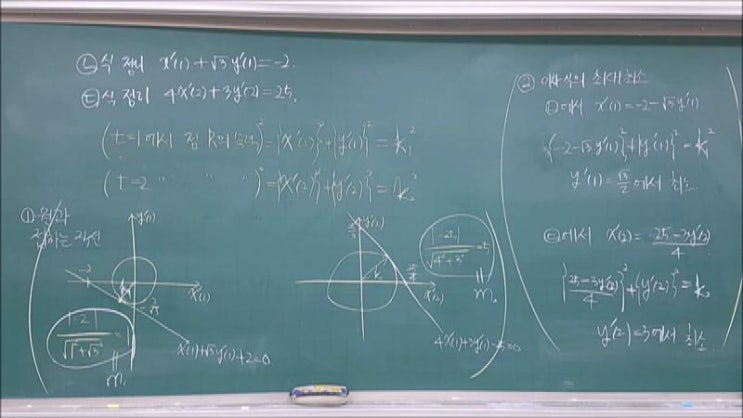 ㉡ 식 정리 x'(1)+√3y'(1)=-2.
㉢ 식 정리 4x'(2)+3y'(2)=25.
(t=1에서 점 R의 속력)²={x'(1)}²+{y'(1)}²=k₁²
(t=2 〃 〃 )²={x'(2)}²+{y'(2)}²=k₂²
① 원과
접하는 직선
y'(1)
-2
x'(1)
-2/√3
|-2|/√(1²+√3²)=
m₁
x'(1)+√3y'(1)+2=0
y'(2)
25/3
25/4
x'(2)
|-25|/√(4²+3²)=5
m₂
4x'(2)+3y'(2)-25=0
② 이차식의 최대최소
㉡에서 x'(1)=-2-√3y'(1)
{-2-√3y'(1)}²+{y'(1)}²=k₁²
㉢에서 x'(2)=(25-3y'(2))/4
{(25-3y'(2))/4}²+{y'(2)}²=k₂
y'(2)=3에서 최소